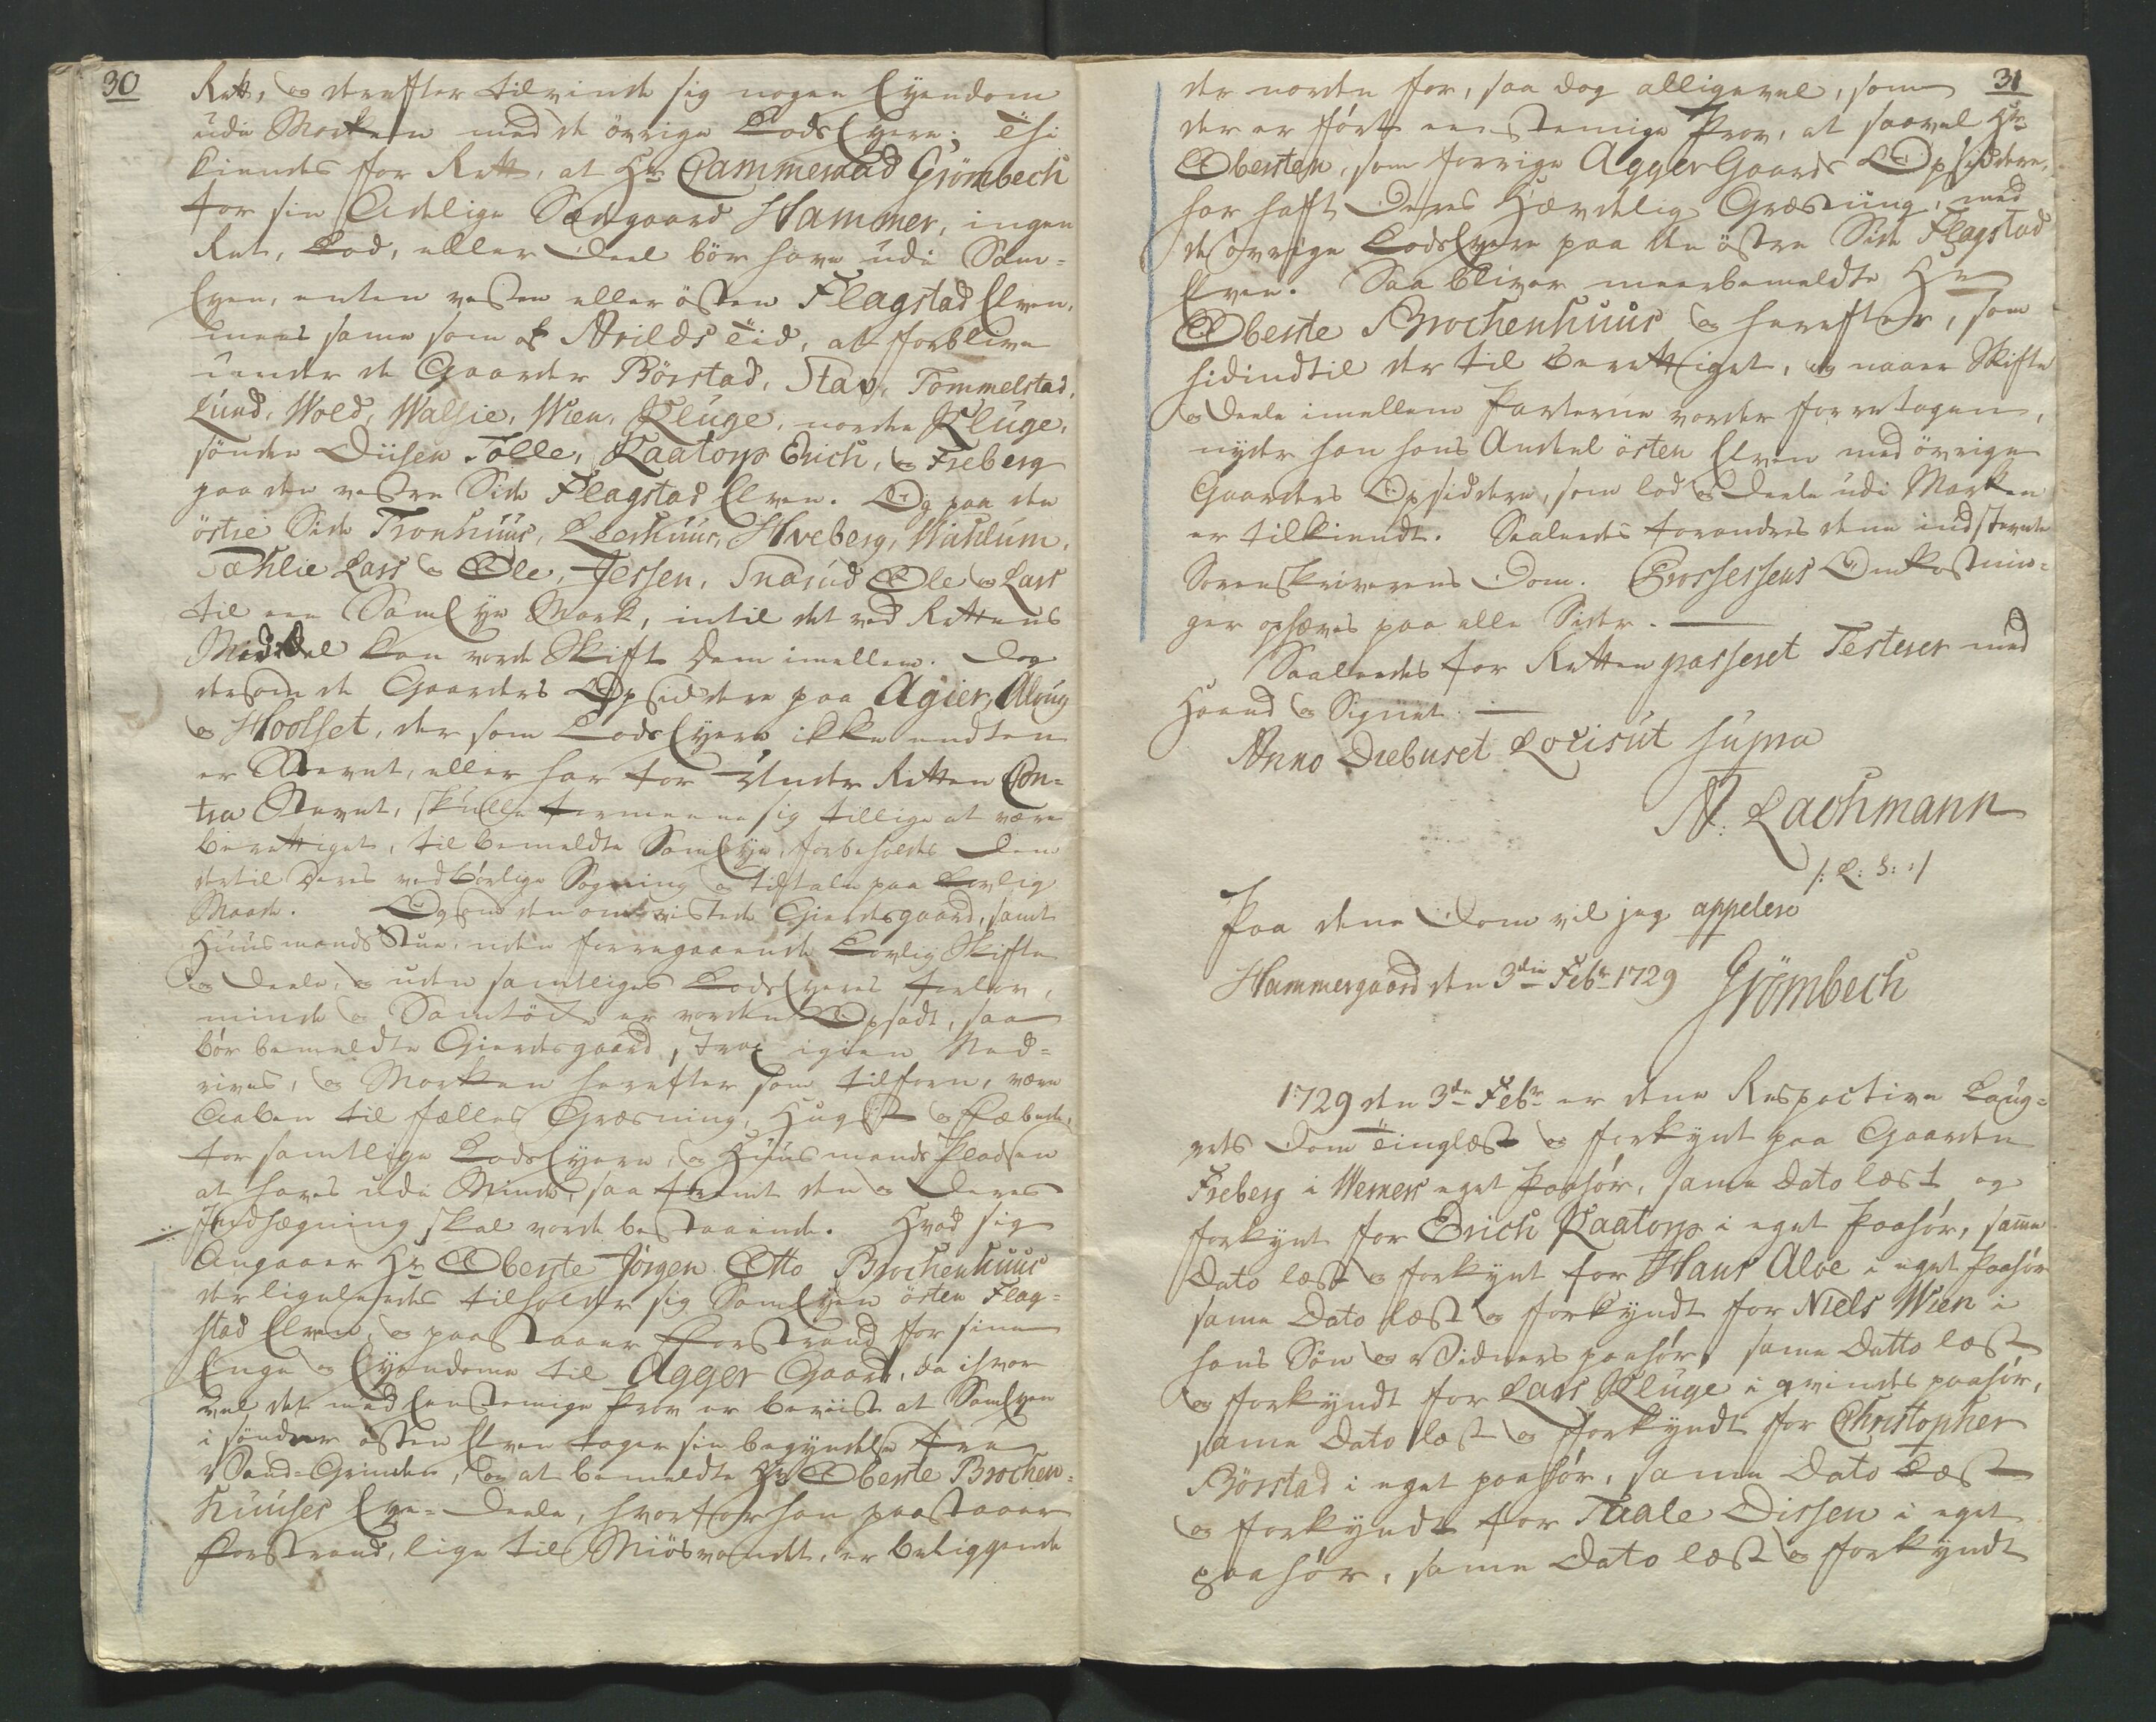 30
Rett, og derefter tilvinde sig nogen Eyendom
udi Marken med de övrige LodsEyere; Thi
kiendes for Rett, at Hr Cammeraad Grömbech
for sin Adelige Sædegaard Hammer, ingen
Ret, Lod, eller Deel bör have udi Sam-
Eyen, enten vesten eller östen Flagstad Elven,
mens same som af Arilds Tid, at forblive
under de Gaarder Börstad, Stav, Tommelstad,
Lund, Wold, Walsie, Wien, Kluge, norden Kluge,
sönden Diisen Tolle, Kaatorp Erich, og Freberg
paa den vestre Side Flagstad Elven. Og paa den
östre Side Tronhuus, Leerhuus, Hveberg, Wahlum,
Dæhlie Lars og Ole, Jessen, Snarud Ole og Lars
til een SamEye Mark, intil det ved Rettens
Middel kan vorde Skift dem imellem. Dog
dersom de Gaarders Opsiddere paa Agier, Alvug
og Hoolset, der som LodsEyere ikke endten
er Stevnt, eller har for Under Retten Con-
tra Stevnt, skulle formeene sig tillige at være
berettiget, til bemeldte SamEye, forbeholdes Dem
dertil deres vedbörlige Sögning og tiltale paa Lovlig
Maade. Og som den omtvistede Gierdesgaard, samt
Huusmands Stue, uden forregaaende Lovlig Skifte
og Deele, og uden samtliges LodsEyeres forlov,
minde og Samtöcke er vorden Opsadt, saa
bör bemeldte Gierdesgaard, strax igien Ned-
rives, og Marken herefter som tilforn, være
Aaben til fælles Græsning, Hugst og Fæbeede,
for samtlige LodsEyere, og Huusmands Pladsen
at haves udi Minde, saa fremt den og Deres
Indhægning skal vorde bestaaende. Hvad sig
Angaaer Hr Oberste Jörgen Otto Brochenhuus
der ligeleedes tilholder sig SamEyen östen Flag-
stad Elven, og paastaaer Forstrand for sine
Enge og Eyendome til Agger Gaard, da ihvor
vel det med Eenstemige Prov er beviist at SamEyen
i sönder östen Elven tager sin begyndelse fra
Sand-Grinden, og at bemeldte Hr Oberste Brochen-
huuses Eye-Deele, hvorfor han paastaaer
Forstrand, lige til Miösvandet, er beliggende
31
der norden for, saa dog alligevel, som
der er fört eenstemige Prov, at saavel Hr
Obersten, som forrige Agger Gaards Opsiddere,
har hafft Deres Hævdelig Græsning, med
de övrige LodsEyere paa den östre Side Flagstad
Elven. Saa bliver meerbemeldte Hr
Oberste Brochenhuus og herefter, som
hidindtil der til berettiget, og naar Skifte
og Deele imellem Parterne vorder forretagen,
nyder han hans Andeel östen Elven med övrige
Gaarders Opsiddere, som lod og Deele udi Marken
er tilkiendt. Saaleedes forandres dene indstevnte
Sorenskriverens Dom. Processens Omkostnin-
ger ophæves paa alle Sider.
Saaleedes for Retten passeret Testerer med
Haand og Signet
Anno Diebuset Locisut supra
N: Lachmann
/: L: S: :/
Paa dene Dom vil jeg appelere
Hammergaard den 3die Febr 1729 Grömbech
1729 den 3de Febr er dene Respective Laug-
rets Dom tinglæst og forkynt paa Gaarden
Freberg i Werners eget Paahör, same Dato læst og
forkynt for Erich Kaatorp i eget Paahör, samme
Dato læst og forkynt for Hans Aloe i eget Paahör
same Dato læst og forkyndt for Niels Wien i
hans Sön og Vidners paahör, same Datto læst
og forkyndt for Lars Kluge i qvindes paahör,
same Dato læst og forkyndt for Christopher
Börstad i eget paahör, same Dato Læst
og forkyndt for Taale Dissen i eget
paahör, same Dato læst og forkyndt